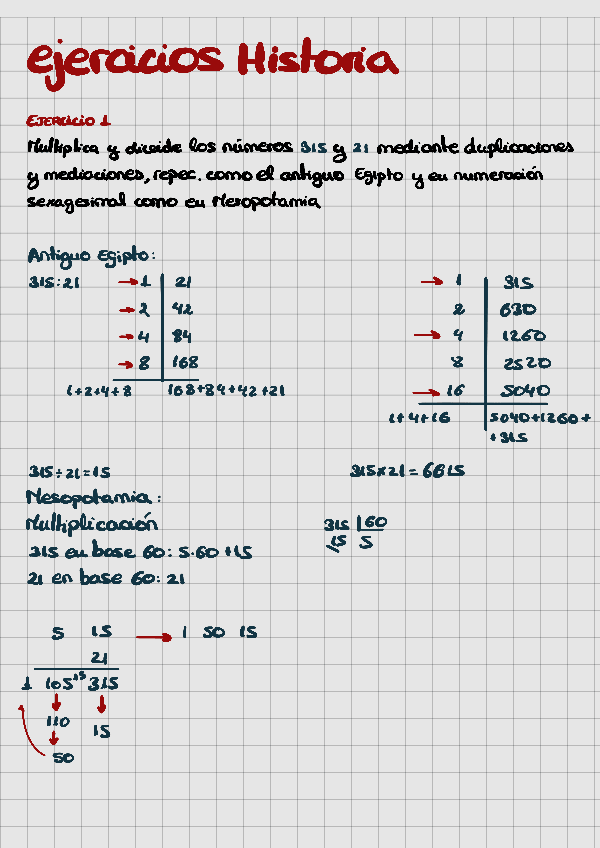 ejercicios Historia
EJERCICIO 1
Multiplica y divide los números 315 y 21 mediante duplicaciones
y mediaciones, repec. como el antiguo Egipto y en numeración
sexagesimal como en Mesopotamia
Antiguo Egipto:
315:21 → 1 21
→ 2 42
→ 4 84
→ 8 168
1+2+4+8 168+84+42+21
→ 1 315
2 630
→ 4 1260
8 2520
→ 16 5040
1+4+16 5040+1260+
+315
315÷21=15
315x21=6615
Mesopotamia:
Multiplicación
315 en base 60: 5·60+15
21 en base 60: 21
315 | 60
15 5
5 15 → 1 50 15
21
1 105 +5 315
110 15
50